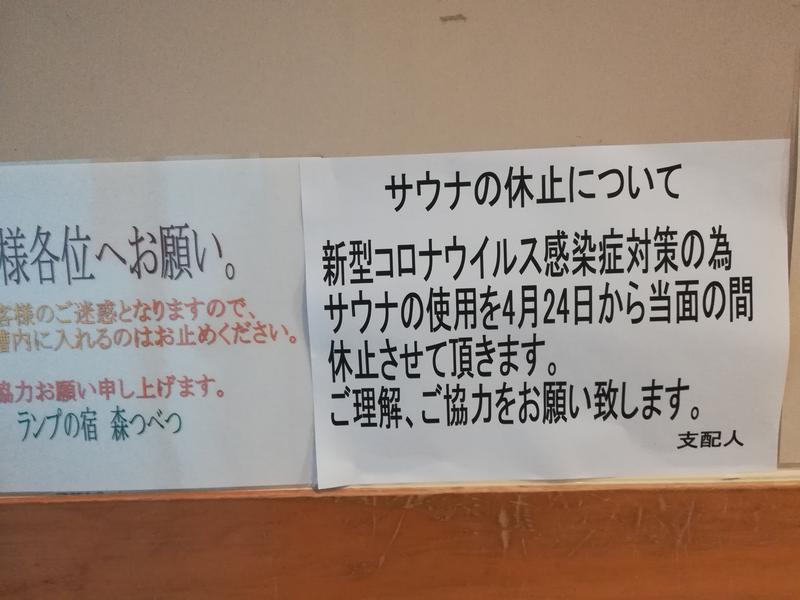 様各位へお願い。
客様のご迷惑となりますので、
槽内に入れるのはお止めください。
協力お願い申し上げます。
ランプの宿 森つべつ
サウナの休止について
新型コロナウイルス感染症対策の為
サウナの使用を4月24日から当面の間
休止させて頂きます。
ご理解、ご協力をお願い致します。
支配人